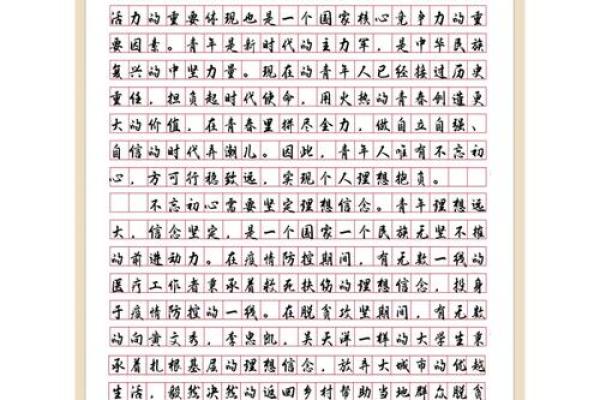 活力的重要体现也是一个国家核心竞争力的重
要因素。青年是新时代的主力军，是中华民族
复兴的中坚力量。现在的青年人已经接过历史
重任，担负起时代使命，用火热的青春创造更
大的价值，在青春里拼尽全力，做自立自强、
自信的时代弄潮儿。因此，青年人唯有不忘初
心，方可行稳致远，实现个人理想抱负。
不忘初心需要坚定理想信念。青年理想远
大，信念坚定，是一个国家一个民族无坚不摧
的前进动力。在疫情防控期间，有无数一线的
医疗工作者秉承着救死扶伤的理想信念，投身
于疫情防控的一线。在脱贫攻坚期间，有无数
的向黄文秀，李忠凯，吴天洋一样的大学生秉
承着扎根基层的理想信念，放弃大城市的优越
生活，毅然决然的返回乡村帮助当地群众脱贫